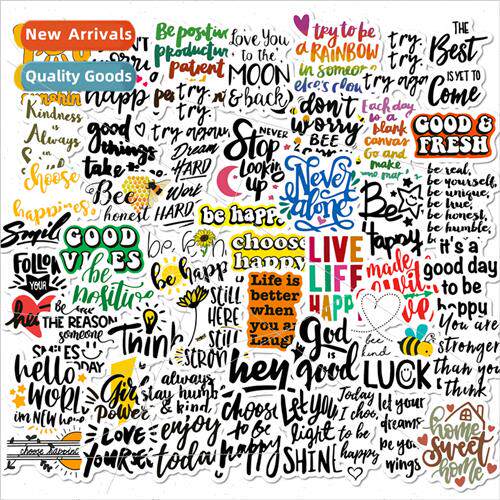 New Arrivals
Quality Goods
Kindness
is
Always
in
choose
happiness.
good
things
take
Be positive
productive
patient
try
try again
Love You
to the
MOON
& back
try to be
a RAINBOW
in someone
else's cloud
try
try
try again
THE
Best
IS YET TO
Come
Dream
HARD
Work
HARD
NEVER
Stop
Looking
up
don't
worry
BEE
Each day
is a
blank
canvas
Go and
make
GOOD &
FRESH
Bee
honest
be happy
Never
alone
Be
Happy
be real,
be yourself,
be unique,
be true,
be honest,
be humble,
Smile
FOLLOW
YOUR
GOOD
VIBES
be
positive
be happy
choose
happy
LIVE
LIFE
HAPPY
made
with
love
it's a
good day
to be
happy
BE
THE REASON
someone
SMILES
TODAY
Think
still
HERE
still
STRONG
Life is
better
when
you are
Laughing
God
is
good
be
kind
You are
stronger
than you
think
hello
WORLD
I'M NEW HERE
Girl
Power
always
stay humble
& kind
hey
LUCK
choose happiness
LOVE
YOURSELF
enjoy
today
choose
to be
happy
Let your
light
SHINE
Today
I choose
to be
happy
let your
dreams
be your
wings
home
sweet
home